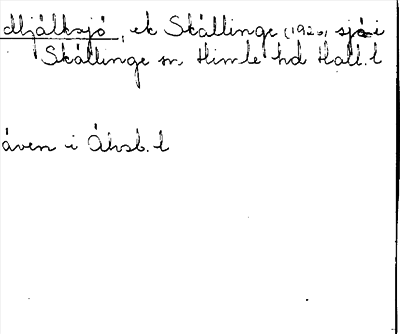 Mjälksjö, ek Skällinge (1926) sjö i
Skällinge sn Himle hd Hall. l
även i Älvsb. l